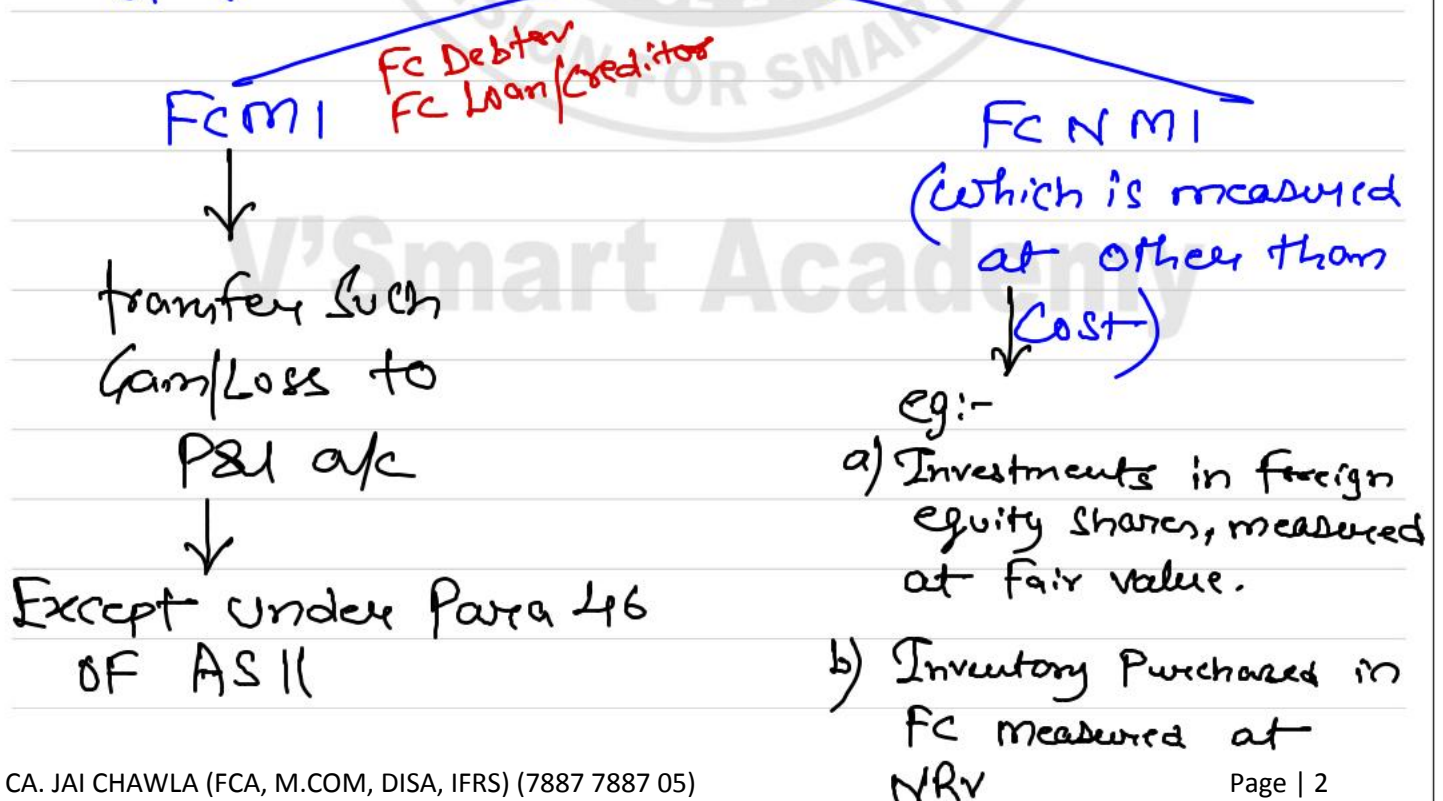 FC Debtor
FC Loan/Creditor
FCMI
transfer Such
Gain/Loss to
P&L a/c
Except under Para 46
OF AS 11
FC NMI
(which is measured
at other than
Cost)
eg:-
a) Investments in foreign
equity shares, measured
at Fair value.
b) Inventory Purchased in
FC measured at
NRV
V'Smart Academy
FOR SMAR
CA. JAI CHAWLA (FCA, M.COM, DISA, IFRS) (7887 7887 05)
Page | 2